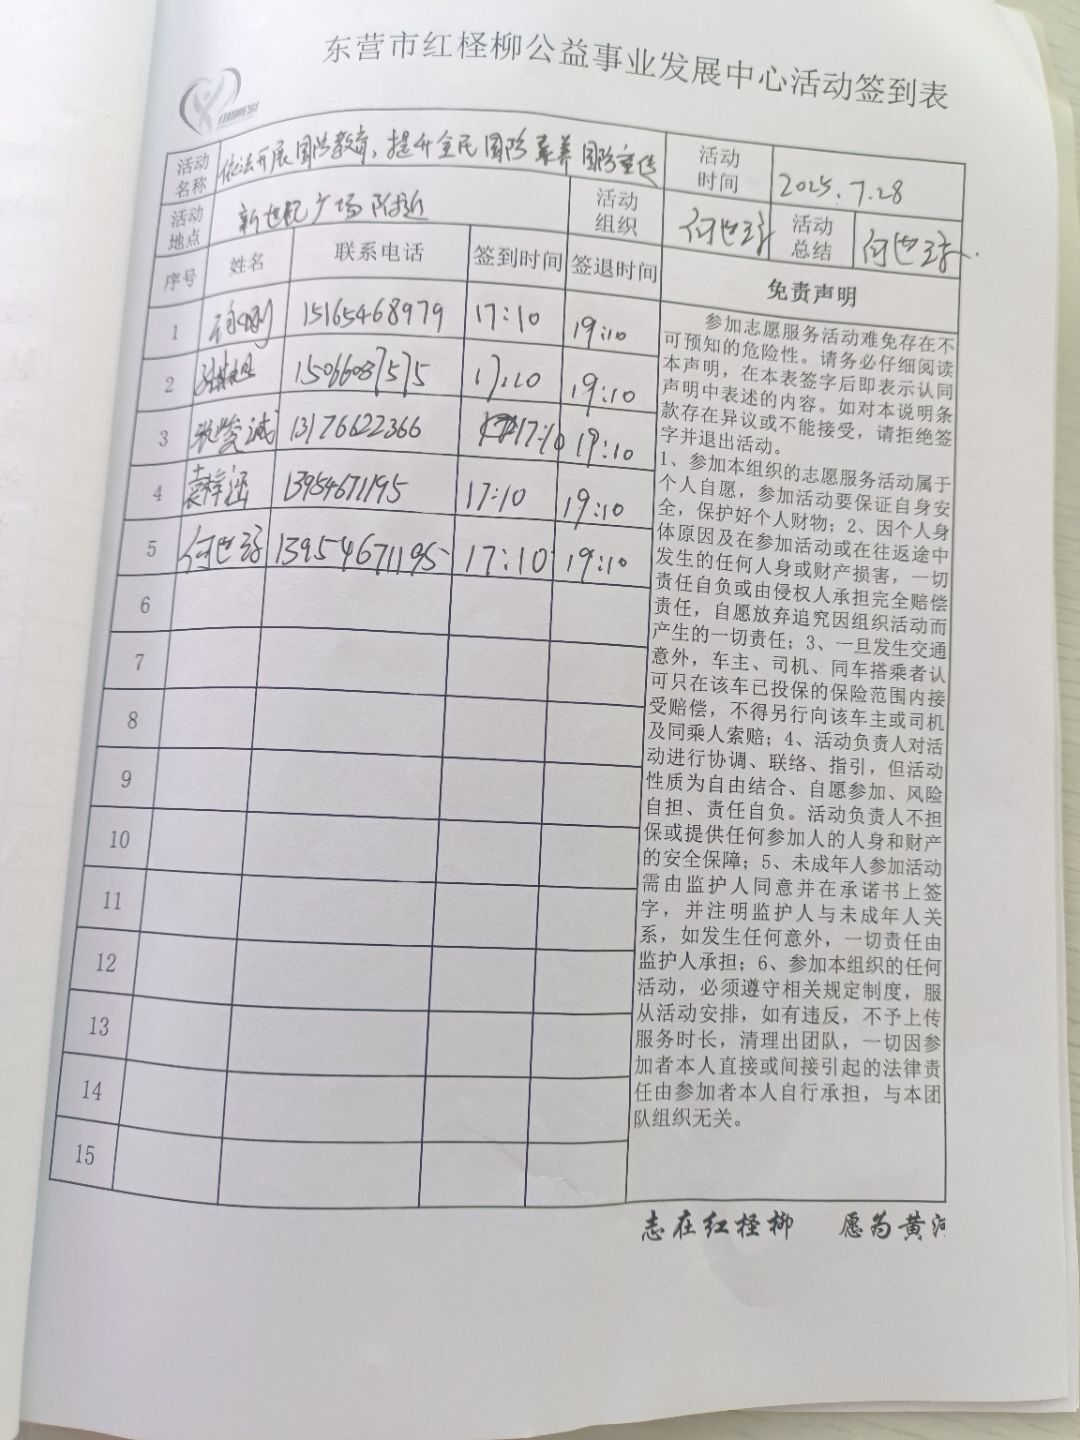 东营市红柽柳公益事业发展中心活动签到表
活动名称 依法开展国防教育、提升全民国防素养国防宣传 活动时间 2025.7.28
活动地点 新世纪广场附近 活动组织 何世 活动总结 何世
序号 姓名 联系电话 签到时间 签退时间 免责声明
1 15165468979 17:10 19:10
2 15066087575 17:10 19:10
3 诚 13176622366 17:10 19:10
4 袁梓涵 13954671195 17:10 19:10
5 何世 13954671195 17:10 19:10
6
7
8
9
10
11
12
13
14
15
参加志愿服务活动难免存在不
可预知的危险性。请务必仔细阅读
本声明，在本表签字后即表示认同
声明中表述的内容。如对本说明条
款存在异议或不能接受，请拒绝签
字并退出活动。
1、参加本组织的志愿服务活动属于
个人自愿，参加活动要保证自身安
全，保护好个人财物；2、因个人身
体原因及在参加活动或在往返途中
发生的任何人身或财产损害，一切
责任自负或由侵权人承担完全赔偿
责任，自愿放弃追究因组织活动而
产生的一切责任；3、一旦发生交通
意外，车主、司机、同车搭乘者认
可只在该车已投保的保险范围内接
受赔偿，不得另行向该车主或司机
及同乘人索赔；4、活动负责人对活
动进行协调、联络、指引，但活动
性质为自由结合、自愿参加、风险
自担、责任自负。活动负责人不担
保或提供任何参加人的人身和财产
的安全保障；5、未成年人参加活动
需由监护人同意并在承诺书上签
字，并注明监护人与未成年人关
系，如发生任何意外，一切责任由
监护人承担；6、参加本组织的任何
活动，必须遵守相关规定制度，服
从活动安排，如有违反，不予上传
服务时长，清理出团队，一切因参
加者本人直接或间接引起的法律责
任由参加者本人自行承担，与本团
队组织无关。
志在红柽柳 愿为黄河